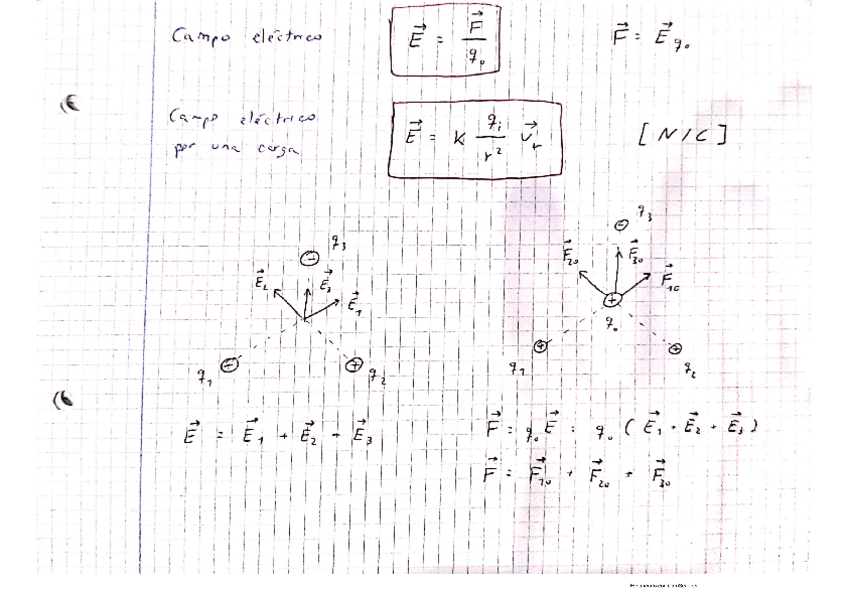 Campo eléctrico E⃗ = F⃗ / q₀ F⃗ = E⃗ q₀
Campo eléctrico
por una carga E⃗ = K qᵢ / r² u⃗ᵣ [N/C]
q₃
−
E⃗₂ E⃗₃ E⃗₁
+ +
q₁ q₂
q₃
−
F⃗₂₀ F⃗₃₀ F⃗₁₀
+
q₀
+ +
q₁ q₂
E⃗ = E⃗₁ + E⃗₂ + E⃗₃
F⃗ = q₀ E⃗ = q₀ (E⃗₁ + E⃗₂ + E⃗₃)
F⃗ = F⃗₁₀ + F⃗₂₀ + F⃗₃₀